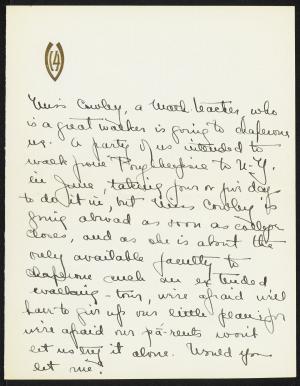 Miss Cowley, a Math teacher, who
is a great walker is going to chaperone
us. A party of us intended to
walk from Poughkeepsie to N-Y.
in June, taking four or five days
to do it in, but Miss Cowley is
going abroad as soon as college
closes, and as she is about the
only available faculty to
chaperone such an extended
walking-tour, we're afraid we'll
have to give up our little plan, for
we're afraid our pa-rents won't
let us try it alone. Would you
let me?